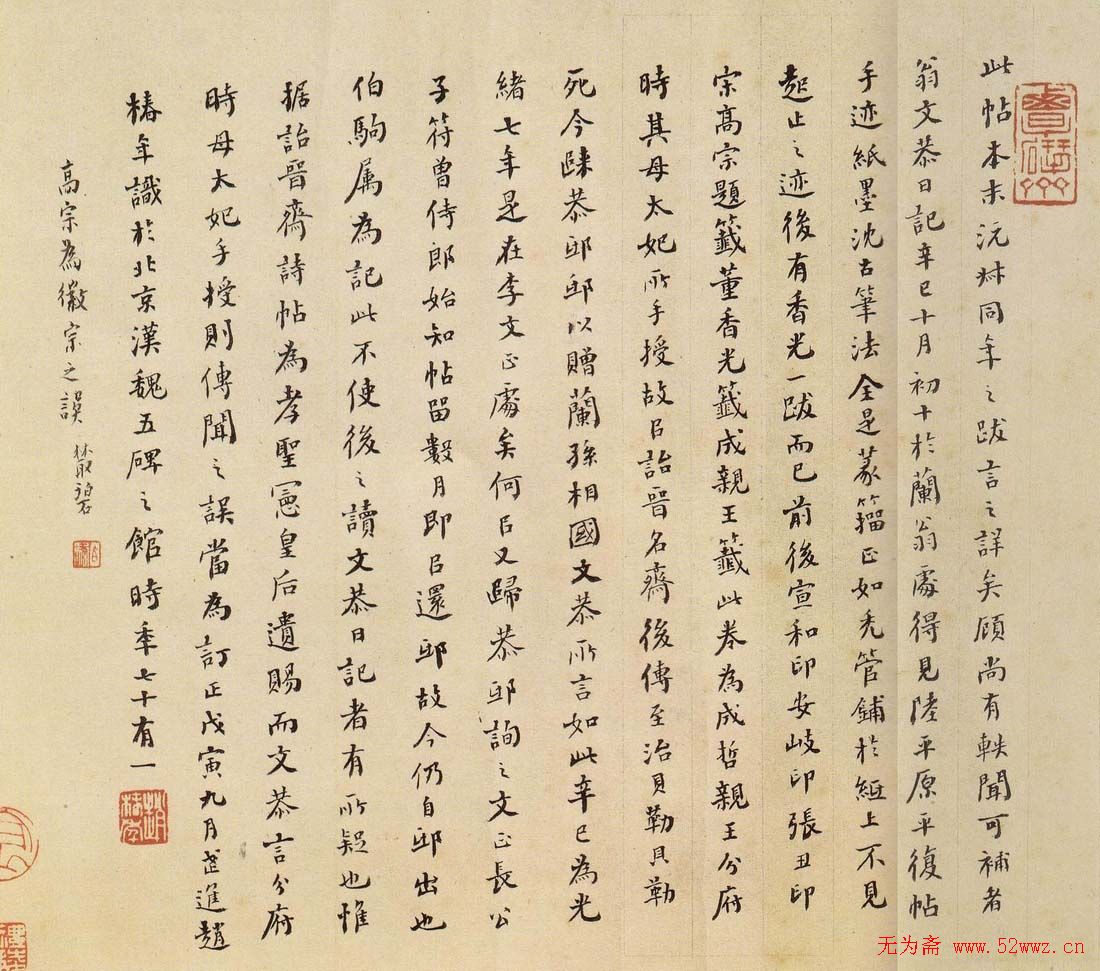 此帖本末沅叔同年之跋言之詳矣顧尚有軼聞可補者
翁文恭日記辛巳十月初十於蘭翁處得見陸平原平復帖
手迹紙墨沈古筆法全是篆籀正如禿管鋪於紙上不見
起止之迹後有香光一跋而已前後宣和印安岐印張丑印
宋高宗題籤董香光籤成親王籤此卷為成哲親王分府
時其母太妃所手授故曰詒晉名齋後傳至治貝勒貝勒
死今歸恭邸邸以贈蘭孫相國文恭所言如此辛巳為光
緒七年是在李文正處矣何曰又歸恭邸詢之文正長公
子符曾侍郎始知帖留數月即曰還邸故今仍自邸出也
伯駒属為記此不使後之讀文恭日記者有所疑也惟
据詒晉齋詩帖為孝聖憲皇后遺賜而文恭言分府
時母太妃手授則傳聞之誤當為訂正戊寅九月武進趙
椿年識於北京漢魏五碑之館時年七十有一
高宗為徽宗之誤
无为斋 www.52wwz.cn